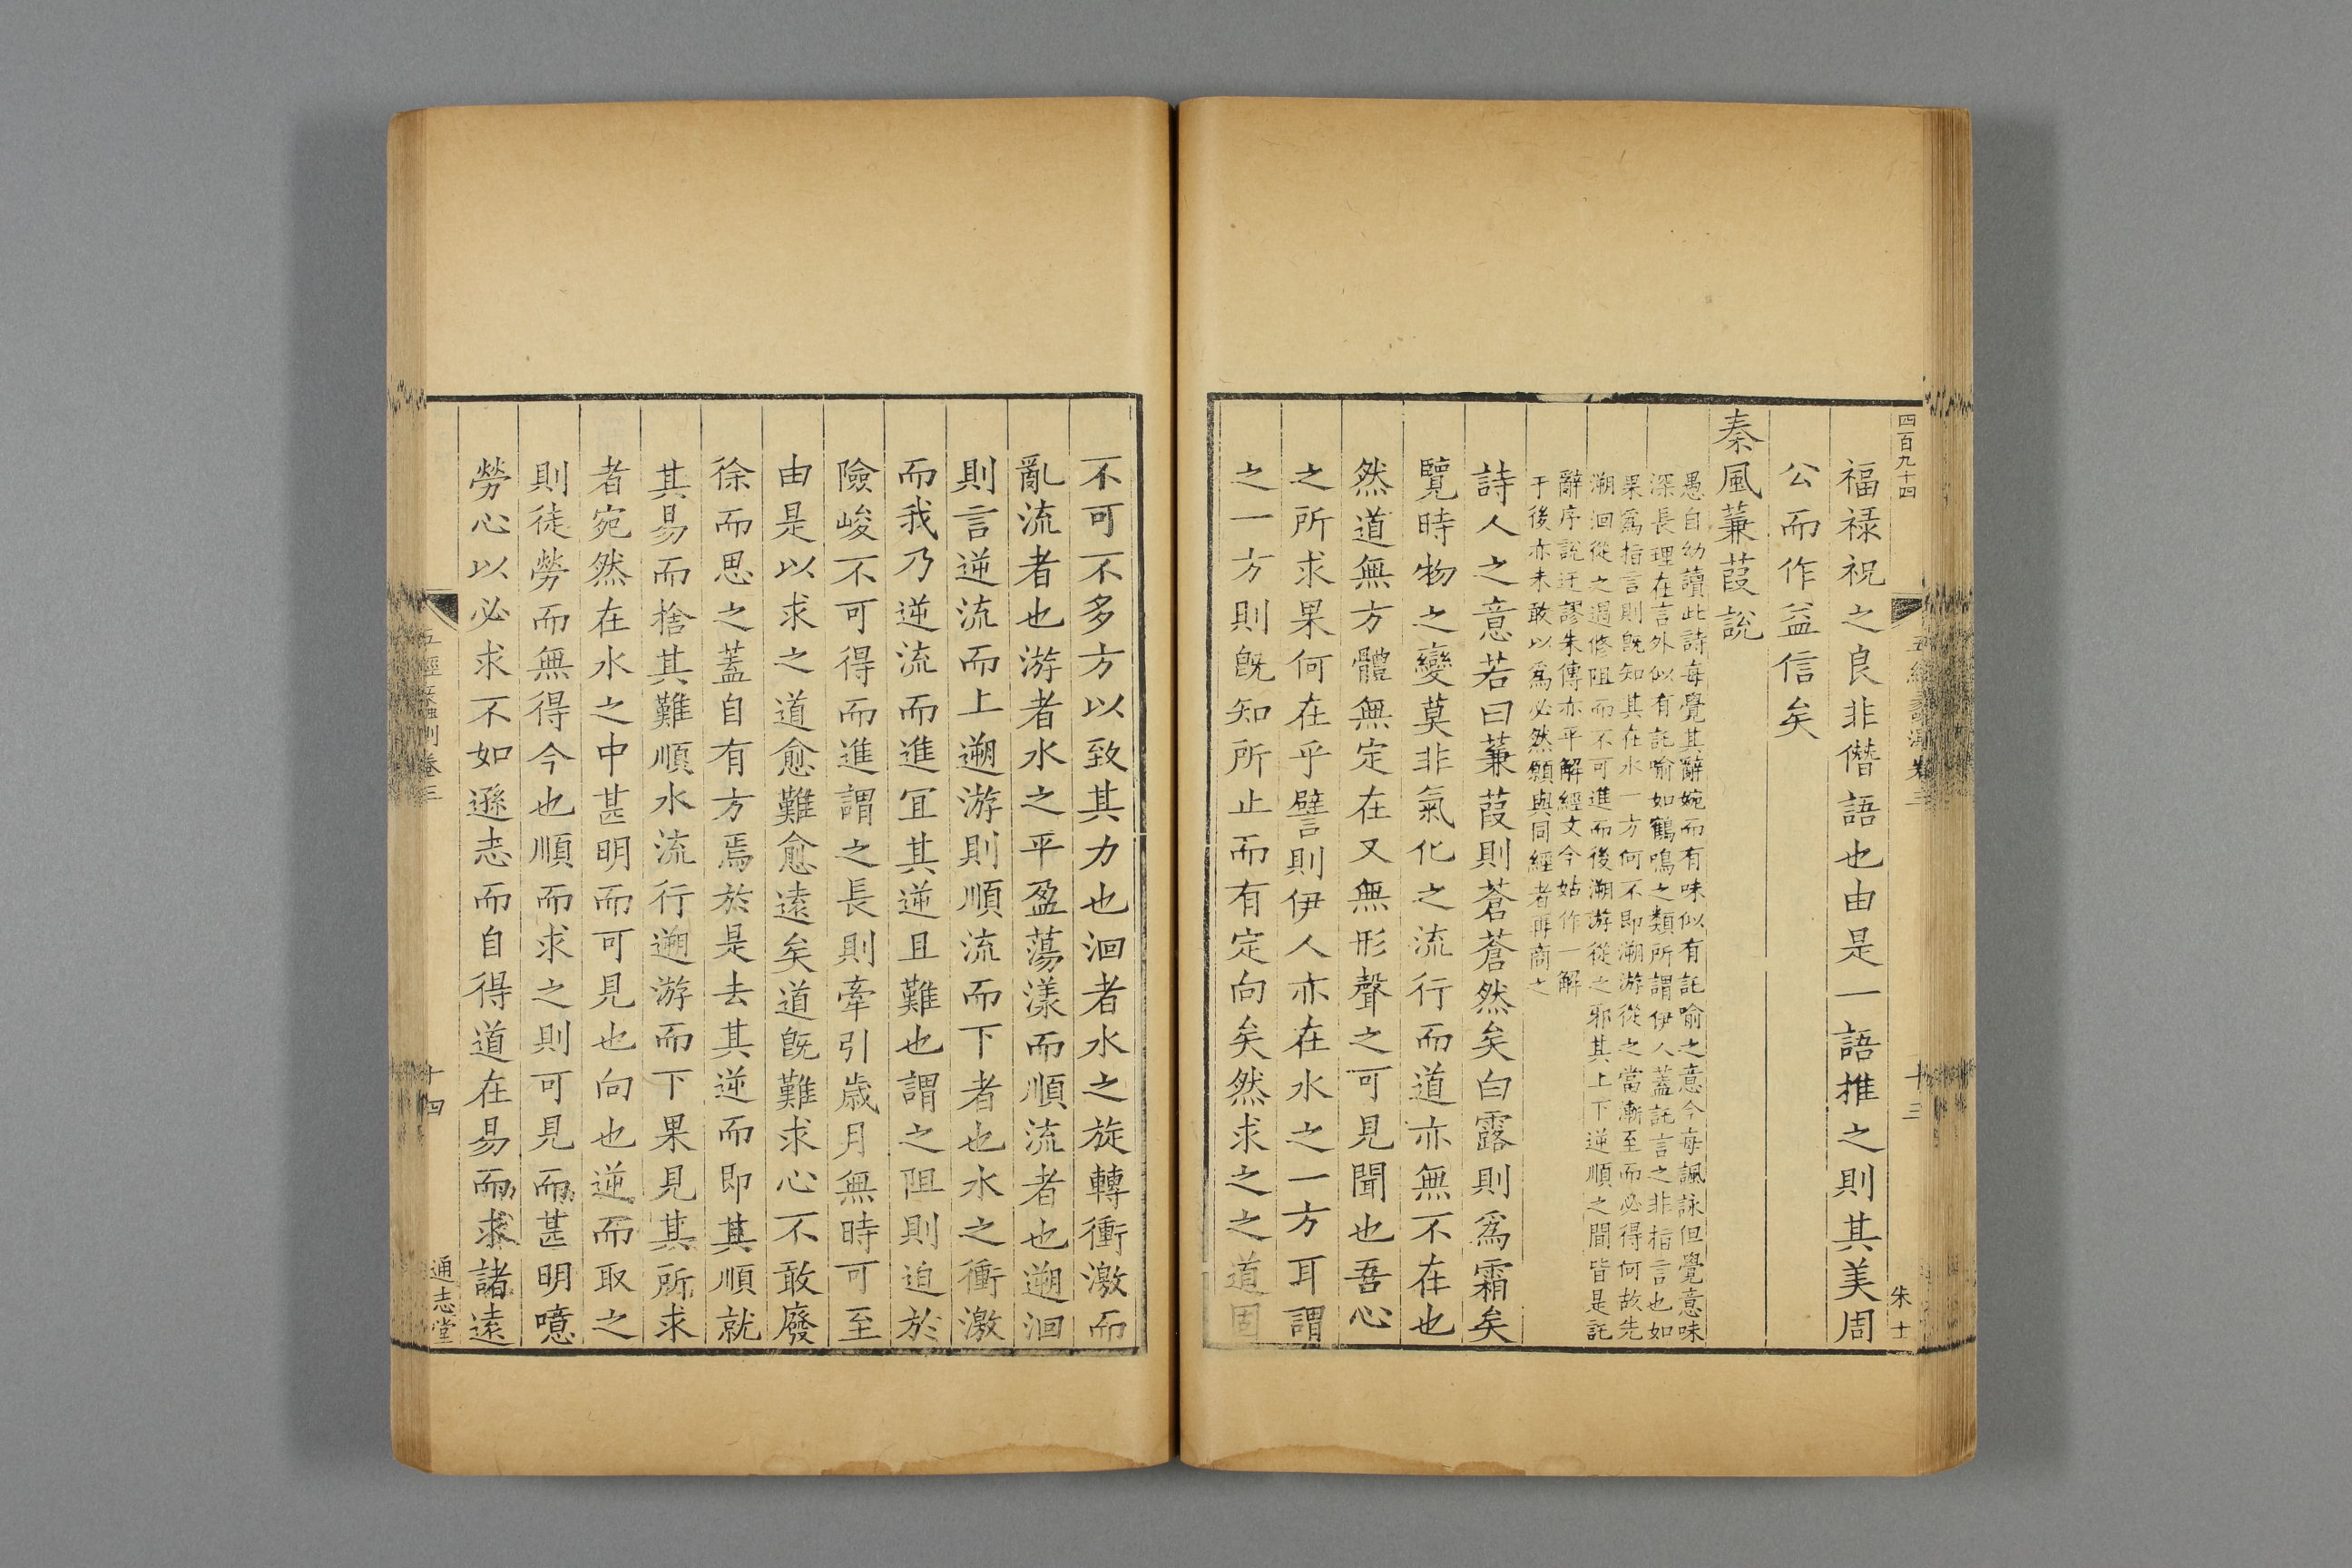 四百九十四
朱士
福祿祝之良非僭語也由是一語推之則其美周
公而作益信矣
秦風蒹葭說
愚自幼讀此詩每覺其辭婉而有味似有託喻之意今每諷詠但覺意味
深長理在言外似有託喻如鶴鳴之類所謂伊人蓋託言之非指言也如
果爲指言則旣知其在水一方何不卽溯游從之當漸至而必得何故先
溯洄從之過修阻而不可進而後溯游從之邪其上下逆順之間皆是託
辭序說迂謬朱傳亦平解經文今姑作一解
于後亦未敢以爲必然願與同經者再商之
詩人之意若曰蒹葭則蒼蒼然矣白露則爲霜矣
覽時物之變莫非氣化之流行而道亦無不在也
然道無方體無定在又無形聲之可見聞也吾心
之所求果何在乎譬則伊人亦在水之一方耳謂
之一方則旣知所止而有定向矣然求之之道固
不可不多方以致其力也洄者水之旋轉衝激而
亂流者也游者水之平盈蕩漾而順流者也遡洄
則言逆流而上遡游則順流而下者也水之衝激
而我乃逆流而進宜其逆且難也謂之阻則迫於
險峻不可得而進謂之長則牽引歲月無時可至
由是以求之道愈難愈遠矣道旣難求心不敢廢
徐而思之蓋自有方焉於是去其逆而即其順就
其易而捨其難順水流行遡游而下果見其所求
者宛然在水之中甚明而可見也向也逆而取之
則徒勞而無得今也順而求之則可見而甚明噫
勞心以必求不如遜志而自得道在易而求諸遠
五經蠡測卷三
十四
通志堂